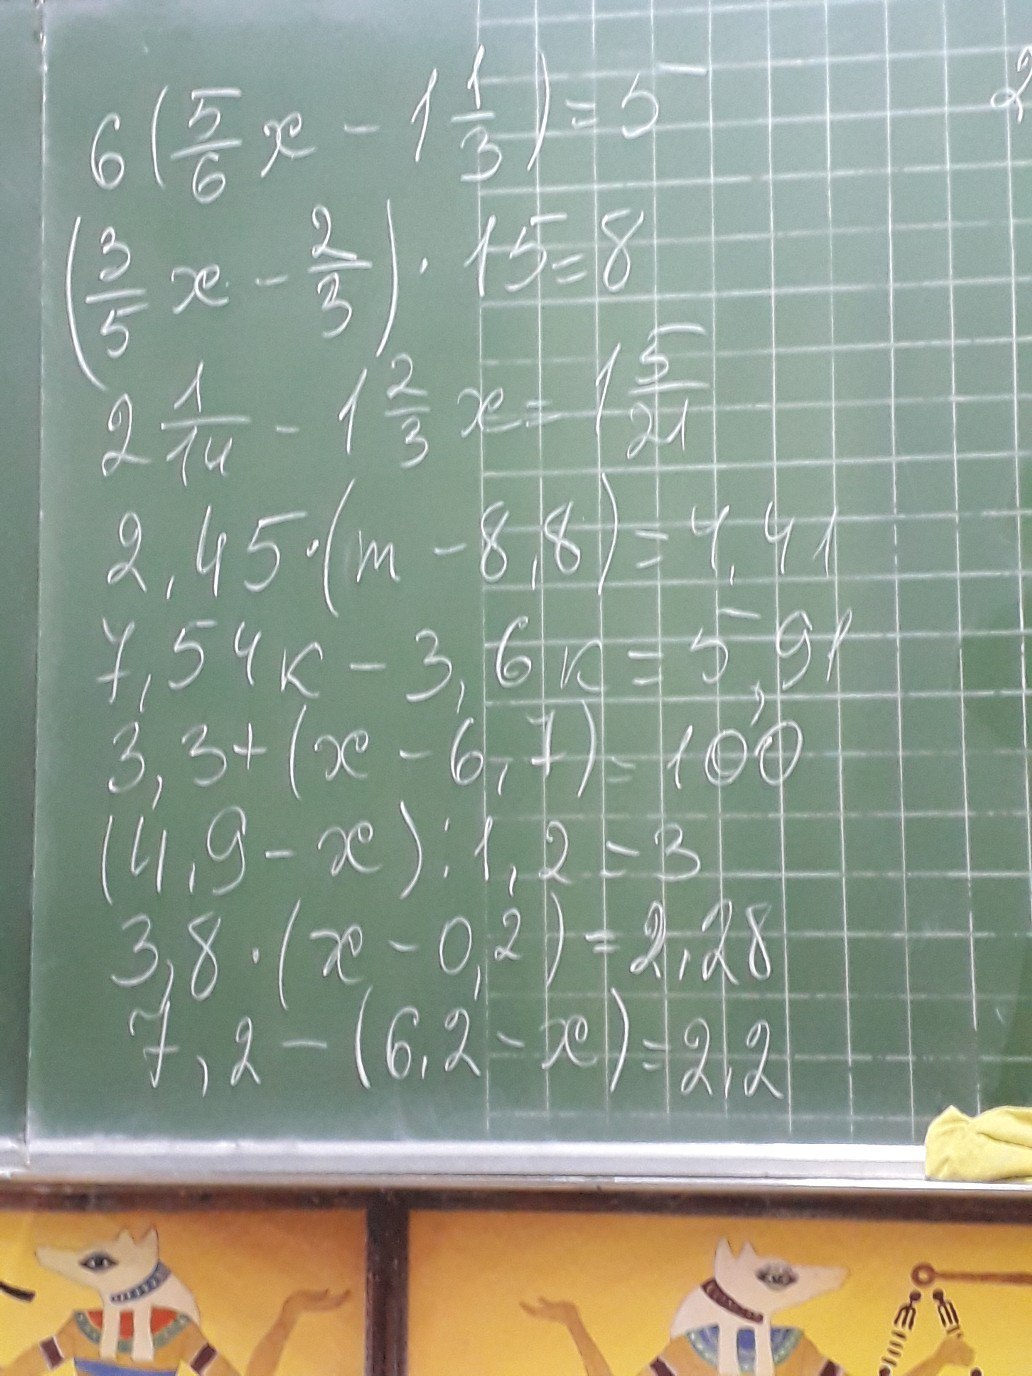 6(5/6 x - 1 1/3) = 5
(3/5 x - 2/3) · 15 = 8
2 1/14 - 1 2/3 x = 1 5/21
2,45·(m - 8,8) = 4,41
7,54к - 3,6к = 5,91
3,3+(x - 6,7) = 10,0
(4,9 - x) : 1,2 = 3
3,8·(x - 0,2) = 2,28
7,2 - (6,2 - x) = 2,2
2